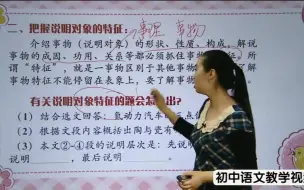 二、把握说明对象的特征:
事理 事物
介绍事物(说明对象)的形状、性质、构成、解说
事物的成因、功用、关系等都必须抓住事物
所谓"特征",就是一事物区别于其他事物
事物特征不能停留在表象上,要了解事物
有关说明对象特征的题会怎 出?
(1)结合选文回答:氢动力汽车的
(2)根据文段内容概括出陶与瓷有
(3)本文②-④段的说明层次是:先说
说明 ,最后说明
初中语文教学视